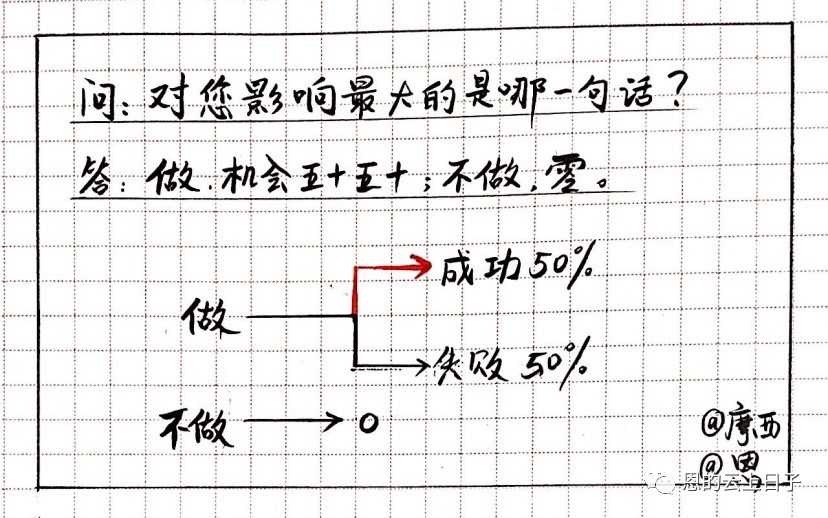 问：对您影响最大的是哪一句话？
答：做，机会五十五十；不做，零。
成功50%
做
失败50%
不做 0
@摩西
@恩
恩的云上日子